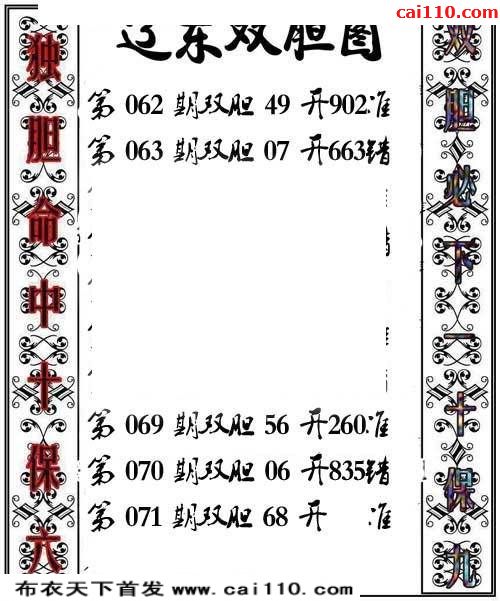 cai110.com
辽东双胆图
独胆命中十保六
双胆必下一十保九
第 062 期双胆 49 开902准
第 063 期双胆 07 开663错
第 069 期双胆 56 开260准
第 070 期双胆 06 开835错
第 071 期双胆 68 开 准
布衣天下首发 www.cai110.com